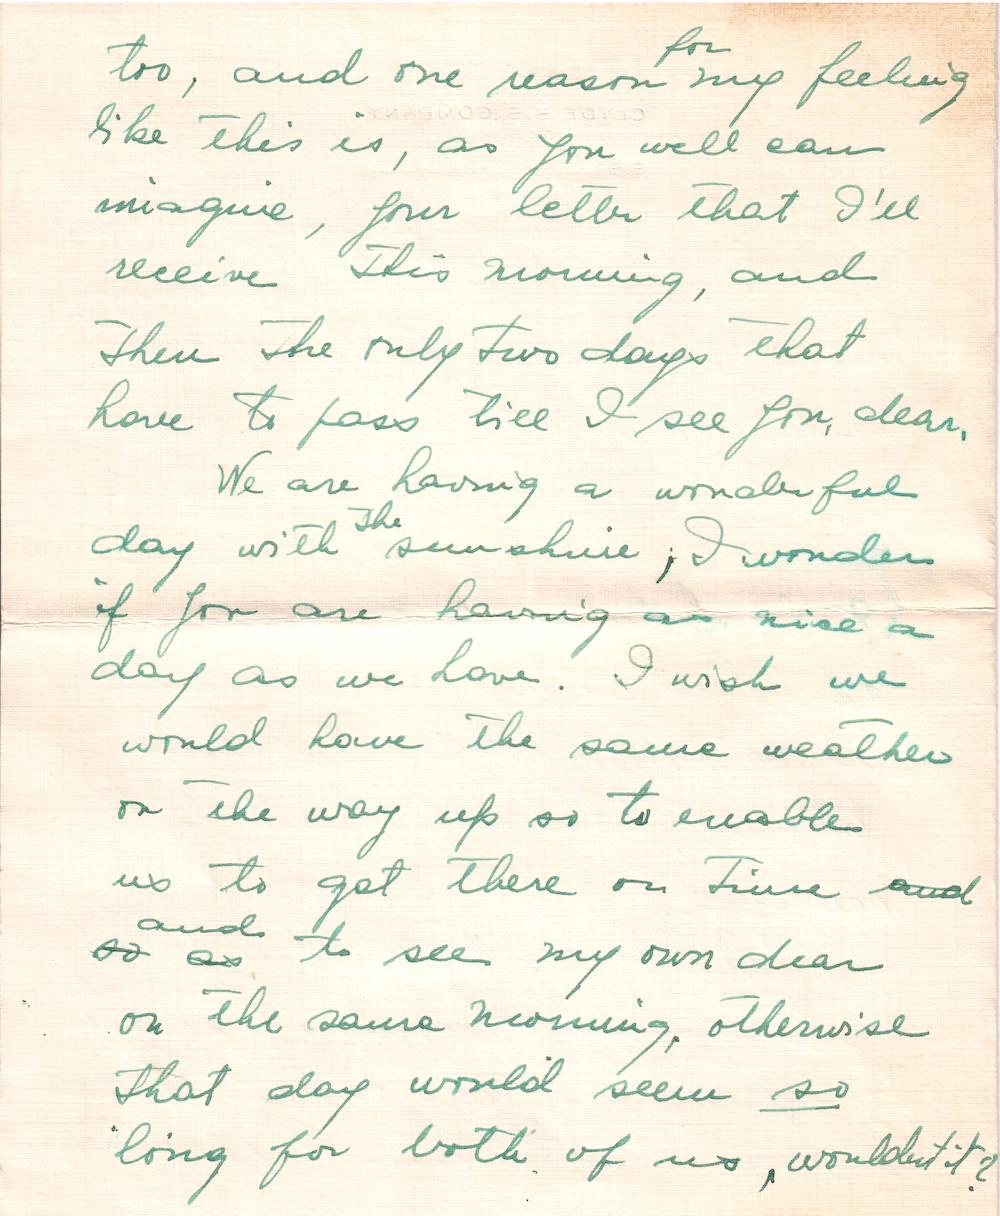 too, and one reason for my feeling
like this is, as you well can
imagine, your letter that I'll
receive this morning, and
then the only two days that
have to pass till I see you, dear.
We are having a wonderful
day with the sunshine; I wonder
if you are having as nice a
day as we have. I wish we
would have the same weather
on the way up so to enable
us to get there on time and
so as and to see my own dear
on the same morning, otherwise
that day would seem so
long for both of us, wouldn't it?
CLYDE S.S. COMPANY